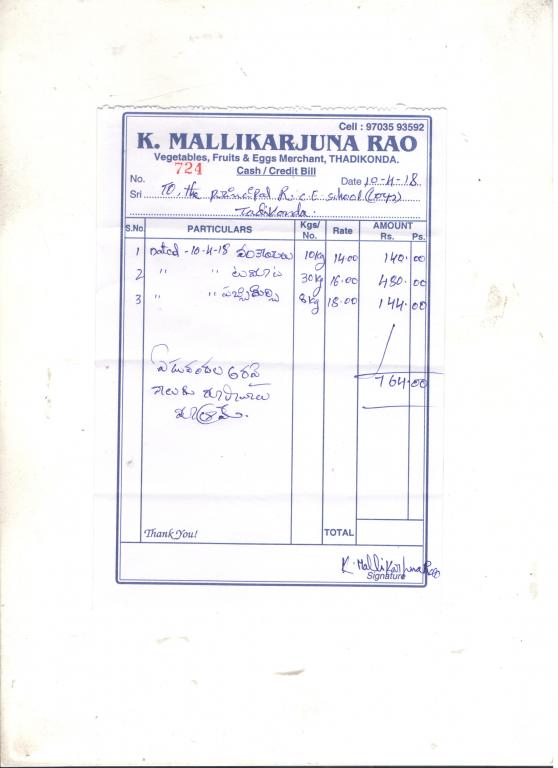 Cell : 97035 93592
K. MALLIKARJUNA RAO
Vegetables, Fruits & Eggs Merchant, THADIKONDA.
724 Cash / Credit Bill
No. Date 10-4-18
Sri To, the principal R.C.E school (Boys)
Tadikonda.
S.No. PARTICULARS Kgs/No. Rate AMOUNT Rs. Ps.
1 Dated - 10-4-18 వంకాయలు 10kg 14.00 140.00
2 " " టమాట 30kg 16.00 480.00
3 " " పచ్చిమిర్చి 8kg 18.00 144.00
764.00
ఏడువందల అరవై
నాలుగు రూపాయలు
మాత్రమే.
Thank You! TOTAL
K. Mallikarjuna Rao
Signature